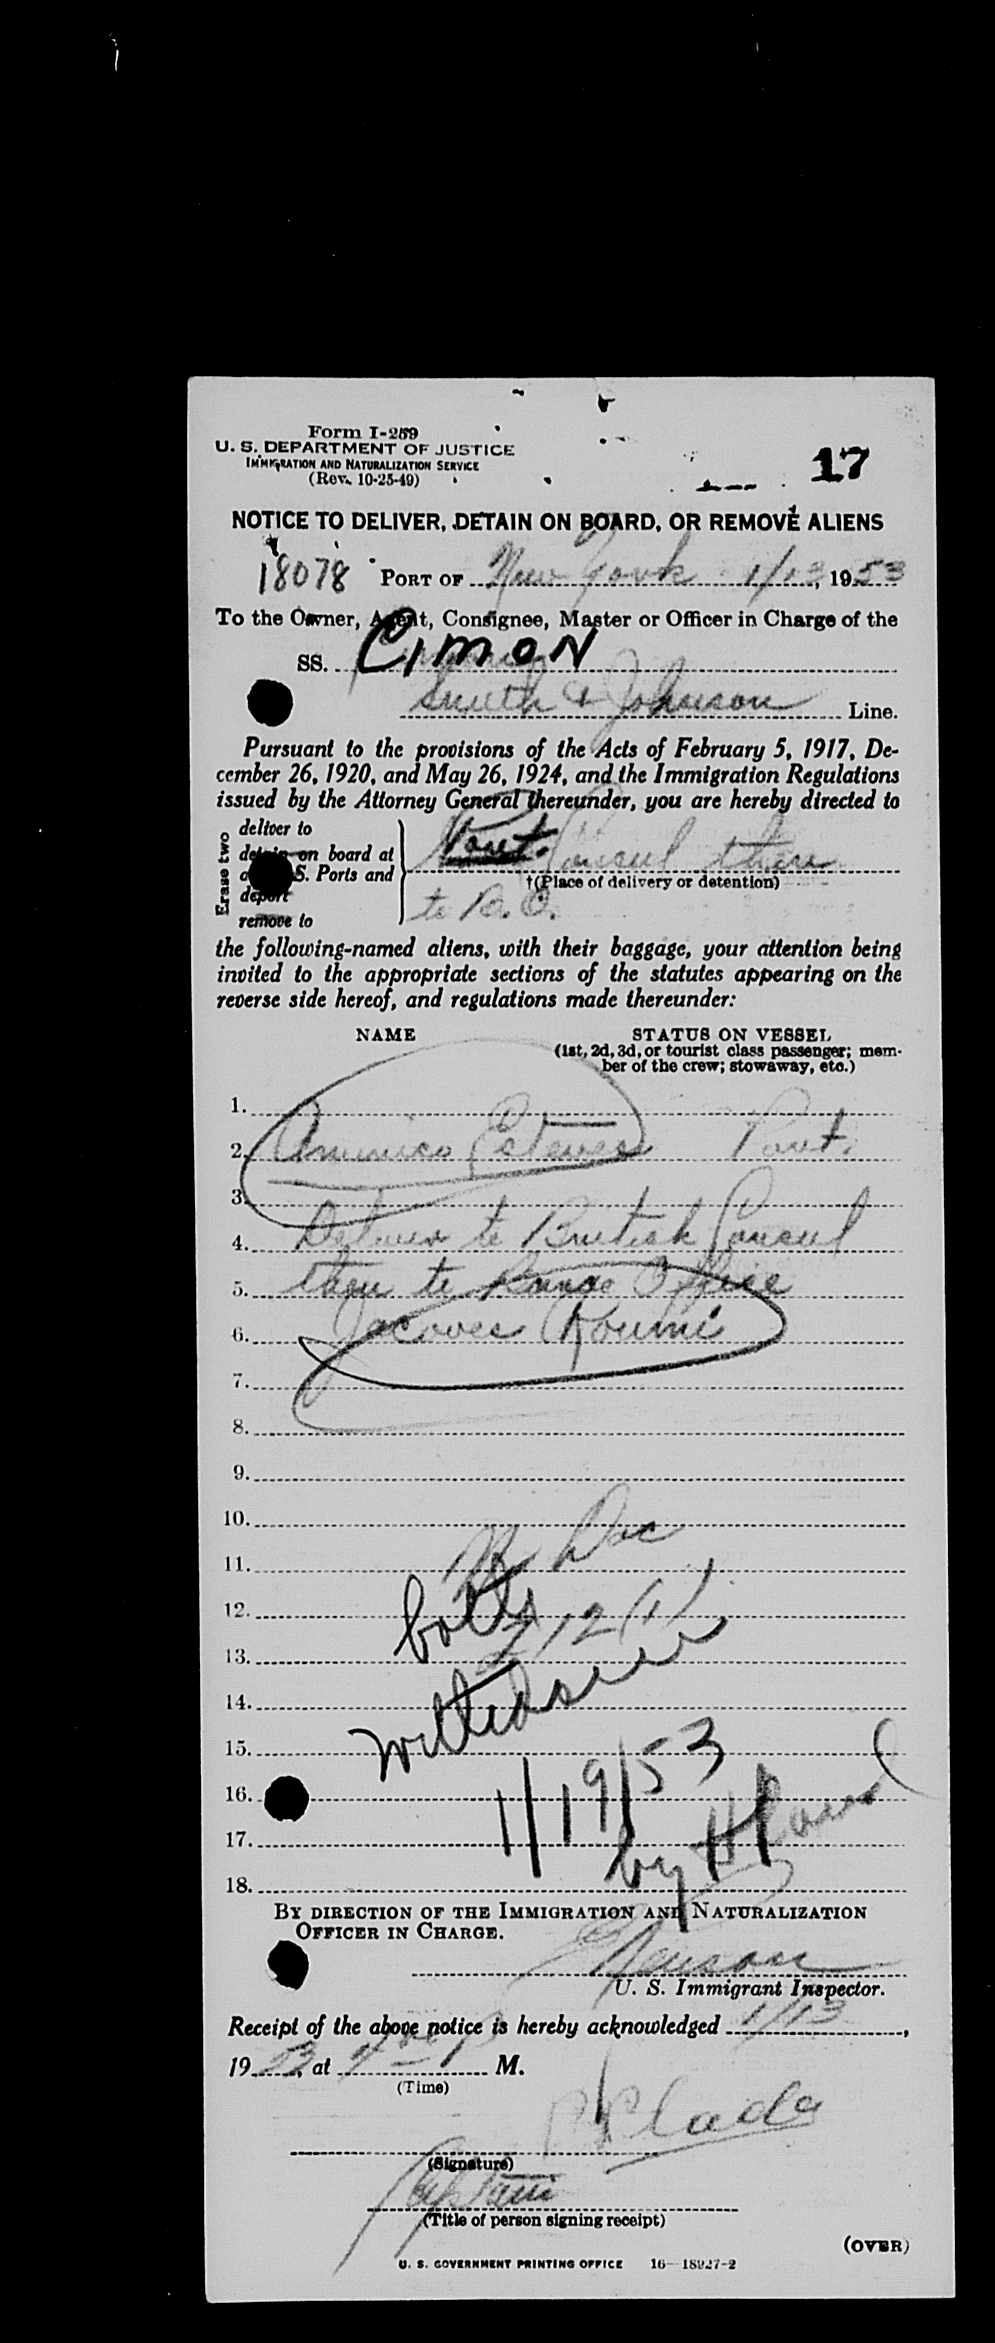 Form I-259
U. S. DEPARTMENT OF JUSTICE
IMMIGRATION AND NATURALIZATION SERVICE
(Rev. 10-25-49)
17
NOTICE TO DELIVER, DETAIN ON BOARD, OR REMOVE ALIENS
18078 PORT OF New York 1/13, 1953
To the Owner, Agent, Consignee, Master or Officer in Charge of the
SS. CIMON
Smith & Johnson Line.
Pursuant to the provisions of the Acts of February 5, 1917, De-
cember 26, 1920, and May 26, 1924, and the Immigration Regulations
issued by the Attorney General thereunder, you are hereby directed to
Erase two
deliver to
detain on board at
S. Ports and
deport
remove to
Port. Consul then
†(Place of delivery or detention)
to B. O.
the following-named aliens, with their baggage, your attention being
invited to the appropriate sections of the statutes appearing on the
reverse side hereof, and regulations made thereunder:
NAME STATUS ON VESSEL
(1st, 2d, 3d, or tourist class passenger; mem-
ber of the crew; stowaway, etc.)
1.
2. Esteves Port.
3.
4. Deliver to British Consul
5. then to Office
6. Jacoves Koumi
7.
8.
9.
10. Doc
11.
12. both 212(1)
13.
14. withdrawn
15.
16. 1/19/53
17. by
18.
BY DIRECTION OF THE IMMIGRATION AND NATURALIZATION
OFFICER IN CHARGE.
U. S. Immigrant Inspector.
Receipt of the above notice is hereby acknowledged 1/13,
1953, at 4 00 P M.
(Time)
(Signature)
Captain
(Title of person signing receipt)
(OVER)
U. S. GOVERNMENT PRINTING OFFICE 16—18927-2